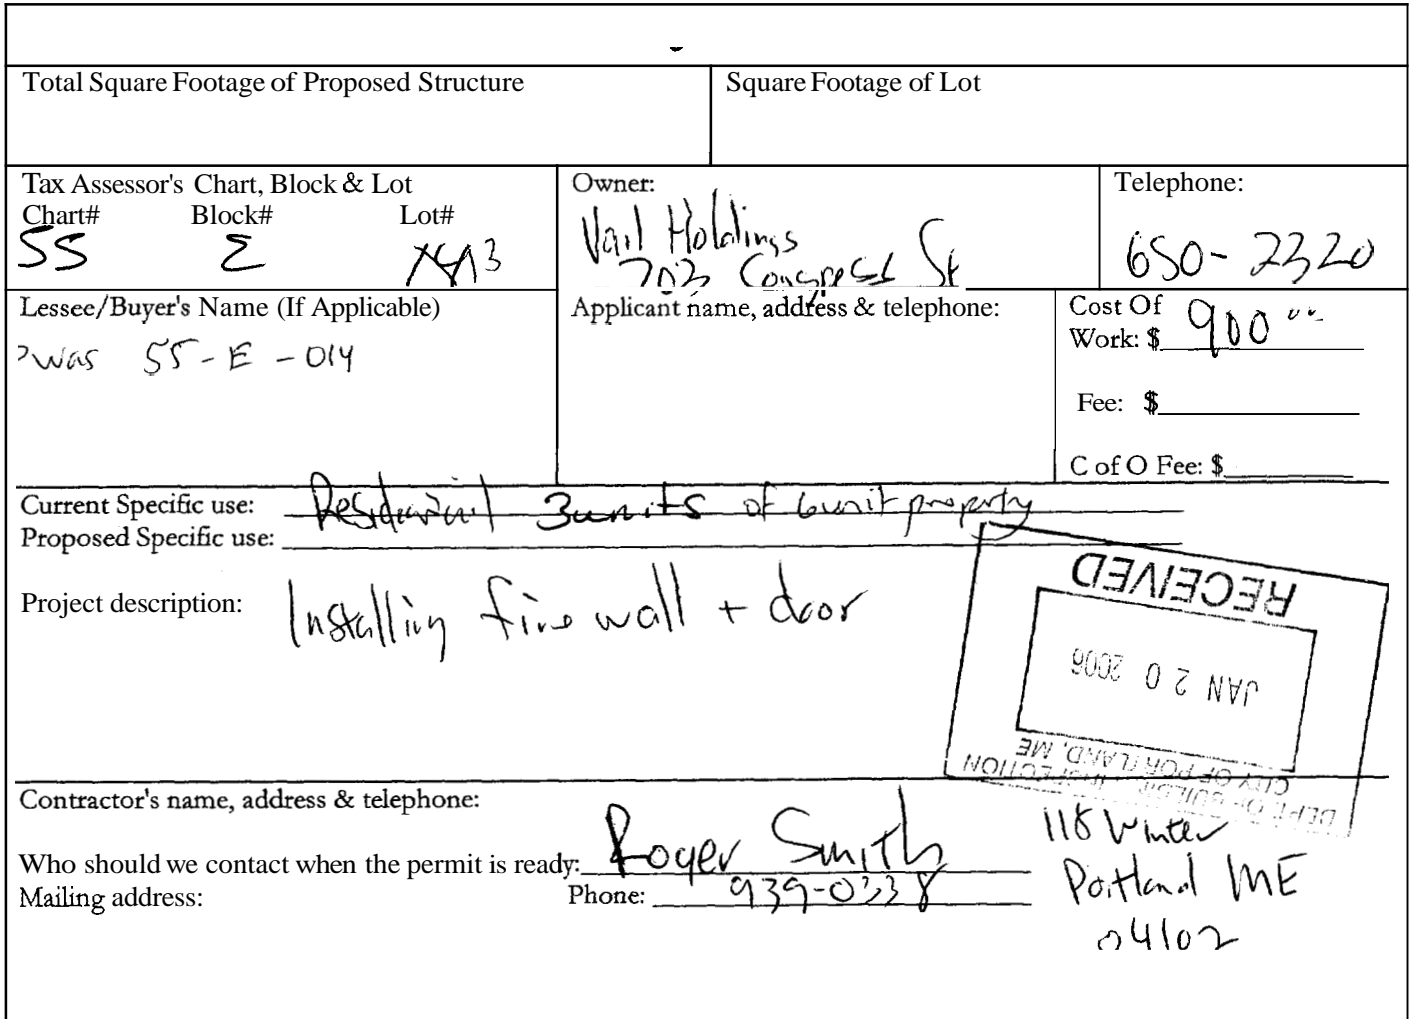 Total Square Footage of Proposed Structure
Square Footage of Lot
Tax Assessor's Chart, Block & Lot
Chart# Block# Lot#
55 E
Owner:
Vail Holdings
703 Congress St
Telephone:
650-2320
Lessee/Buyer's Name (If Applicable)
was 55-E-014
Applicant name, address & telephone:
Cost Of
Work: $ 900
Fee: $
C of O Fee: $
Current Specific use: Residential 3 units of 6 unit property
Proposed Specific use:
Project description: Installing fire wall + door
RECEIVED
JAN 20 2006
DEPT. OF BUILDING INSPECTION
CITY OF PORTLAND, ME
Contractor's name, address & telephone:
Who should we contact when the permit is ready: Roger Smith
Mailing address:
Phone: 939-0338
118 Winter
Portland ME
04102